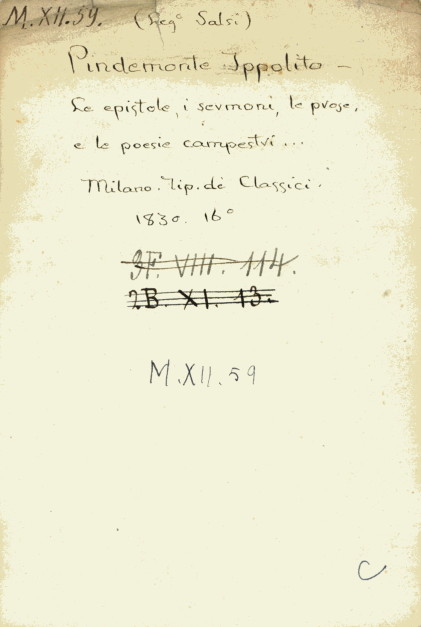 M.XII.59. (Leg° Salsi)
Pindemonte Ippolito -
Le epistole, i sermoni, le prose,
e le poesie campestri...
Milano. Tip. dei Classici.
1830. 16°
3F. VIII. 114.
2B. XI. 13.
M.XII.59
C